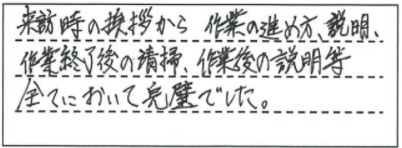 来訪時の挨拶から 作業の進め方、説明、
作業終了後の清掃、作業後の説明等
全てにおいて完璧でした。